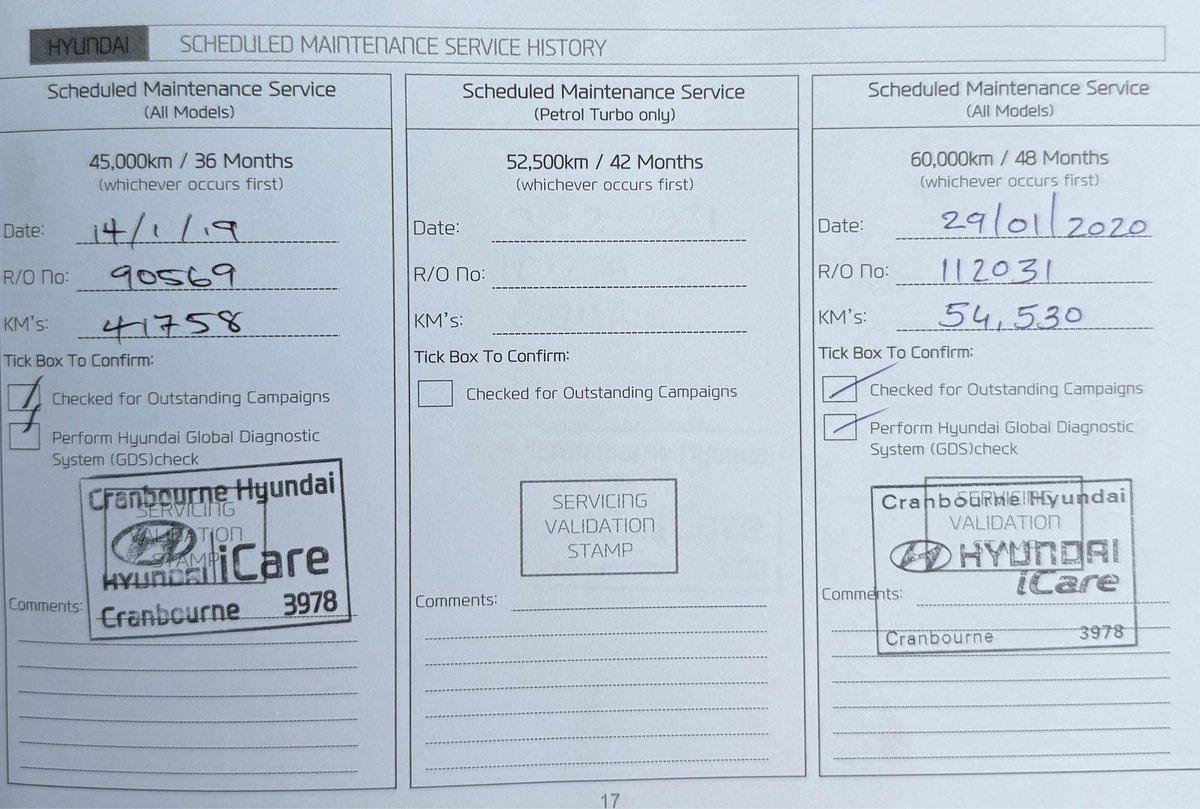 HYUNDAI SCHEDULED MAINTENANCE SERVICE HISTORY
Scheduled Maintenance Service
(All Models)
45,000km / 36 Months
(whichever occurs first)
Date: 14/1/19
R/O No: 90569
KM's: 41758
Tick Box To Confirm:
Checked for Outstanding Campaigns
Perform Hyundai Global Diagnostic
System (GDS)check
Cranbourne Hyundai
SERVICING
VALIDATION
STAMP
HYUNDAI iCare
Cranbourne 3978
Comments:
Scheduled Maintenance Service
(Petrol Turbo only)
52,500km / 42 Months
(whichever occurs first)
Date:
R/O No:
KM's:
Tick Box To Confirm:
Checked for Outstanding Campaigns
SERVICING
VALIDATION
STAMP
Comments:
Scheduled Maintenance Service
(All Models)
60,000km / 48 Months
(whichever occurs first)
Date: 29/01/2020
R/O No: 112031
KM's: 54,530
Tick Box To Confirm:
Checked for Outstanding Campaigns
Perform Hyundai Global Diagnostic
System (GDS)check
Cranbourne Hyundai
SERVICING
VALIDATION
HYUNDAI
iCare
Comments:
Cranbourne 3978
17